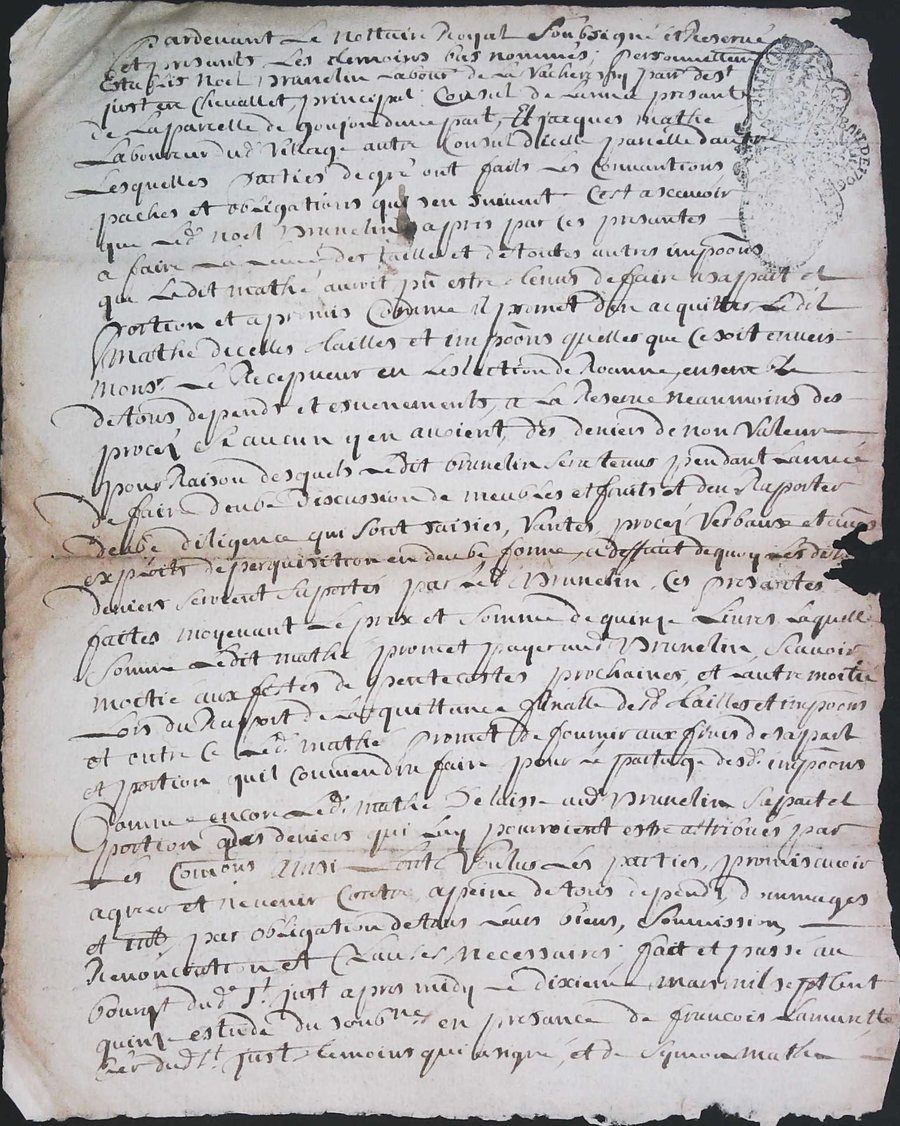 Pardevant Le Nottaire Royal Soubsigné et Reservé
et presants Les temoins bas nommés; Personnellem
Estably Noel Brunelin Labour de La Vachere par de st
just en Chevallet, principal Consul de Lannée presante
de La parcelle de dune part, Et jacques mathé
Laboureur dud Village autre Consul dicelle parcelle dautre
Lesquelles Parties de gré ont faits Les Conventions
paches et obligations qui sen suivent Cest a scavoir
que Led noel Brunelin a pris par Ces presantes
a faire La Levée des tailles et de toutes autres impoons
que Ledit mathé auroit pu estre tenus de faire a sa part et
Portion et a promis Comme il promet den acquitter Ledit
Mathé dicelles tailles et impoons quelles que Ce soit envers
Monsr Le Recepveur en Leslection de Roanne, ensemble
de tous depends et esvenements, a La Reserve neanmoins des
procès si aucun y en avoient, des deniers de non Valeur
pour Raison desquels Ledit brunelin sera tenus pendant Lannée
de faire deube Discussion de meubles et fruits et den Raporter
deube diligence qui soit saisies, Vantes, procès Verbaux et
exploits de perquisition en deube forme, a deffaut de quoy Lesd
deniers seroient suportés par Led Brunelin, Ces presantes
faites moyenant Le prix et Somme de quinze Livres Laquelle
Somme Ledit mathé promet payer aud Brunelin, Scavoir
moitié aux festes de pentecostes prochaines, et Lautre moitié
Lors du Raport de La quittance finalle desd tailles et impoons
et outre Ce Led mathé promet de fournir aux frais de sa part
et portion quil Conviendra faire pour Le partage desd impoons
Comme encore Led mathé delaisse aud Brunelin Sa part et
portion des deniers qui Luy pourroient estre attribués par
Les Comons Ainsi Lont Voulus Les parties, promis avoir
agréer et ne venir Contre a peine de tous depends, dommages
et intz, par obligation de tous Leurs biens, Soumission,
Renonciation et Clauses necessaires; fait et passé au
bourgt dud St just apres midy Le dixieme mars mil sept Cent
quinze estude du soubne en presance de francois Lamurette
dud St just temoins qui a signé, et de Symon mathé